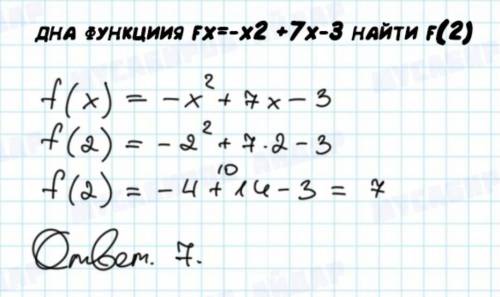 ДНА ФУНКЦИИЯ FX=-X2 +7X-3 НАЙТИ F(2)
f(x) = -x² + 7x - 3
f(2) = -2² + 7·2 - 3
10
f(2) = -4 + 14 - 3 = 7
Ответ. 7.